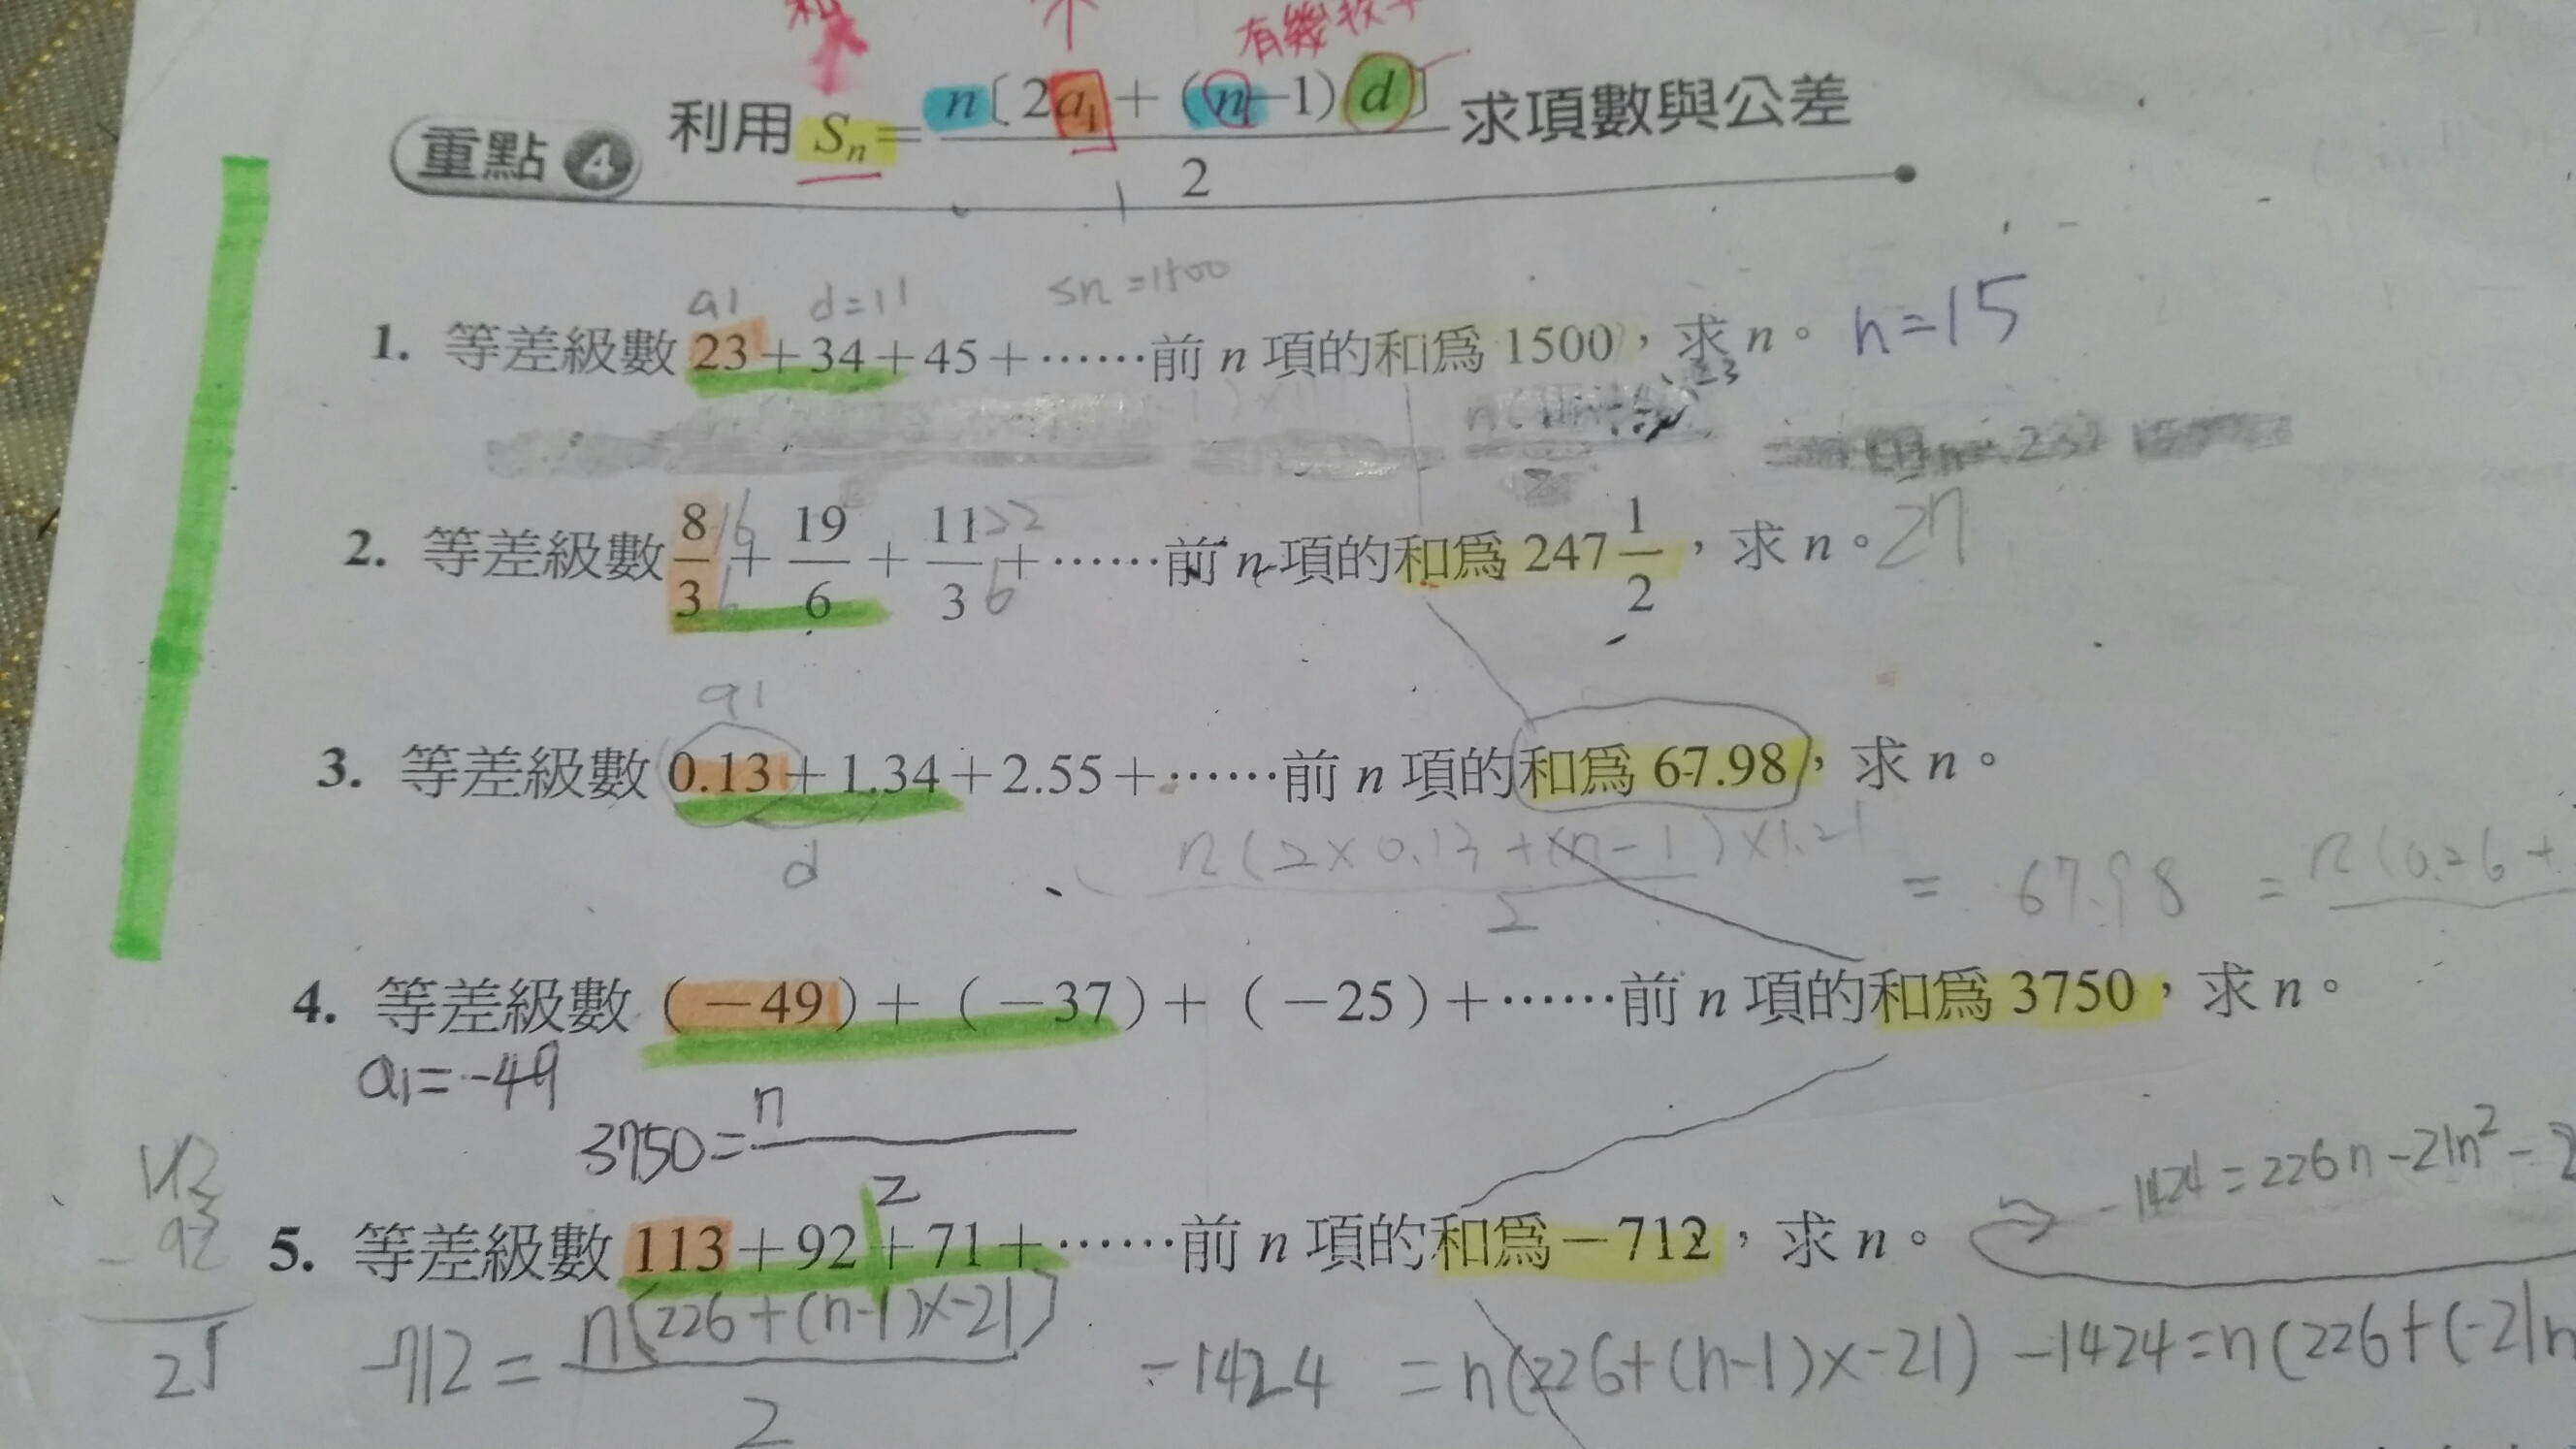 和
有幾
重點 4 利用 Sn = n〔2a1+(n-1)d〕/2 求項數與公差
a1 d=11 Sn=1500
1. 等差級數 23+34+45+……前 n 項的和為 1500，求 n。 n=15
2. 等差級數 8/3 + 19/6 + 11/3 + ……前 n 項的和為 247 1/2，求 n。 27
16 6 22 6
a1
3. 等差級數 0.13+1.34+2.55+……前 n 項的和為 67.98，求 n。
d
n(2×0.13+(n-1)×1.21 / 2 = 67.98 = n(0.26+
4. 等差級數（-49）+（-37）+（-25）+……前 n 項的和為 3750，求 n。
a1=-49
3750= n / 2
-1424=226n-21n²-2
5. 等差級數 113+92+71+……前 n 項的和為-712，求 n。
-712 = n(226+(n-1)×-21) / 2
-1424 = n(226+(n-1)×-21) -1424=n(226+(-21n